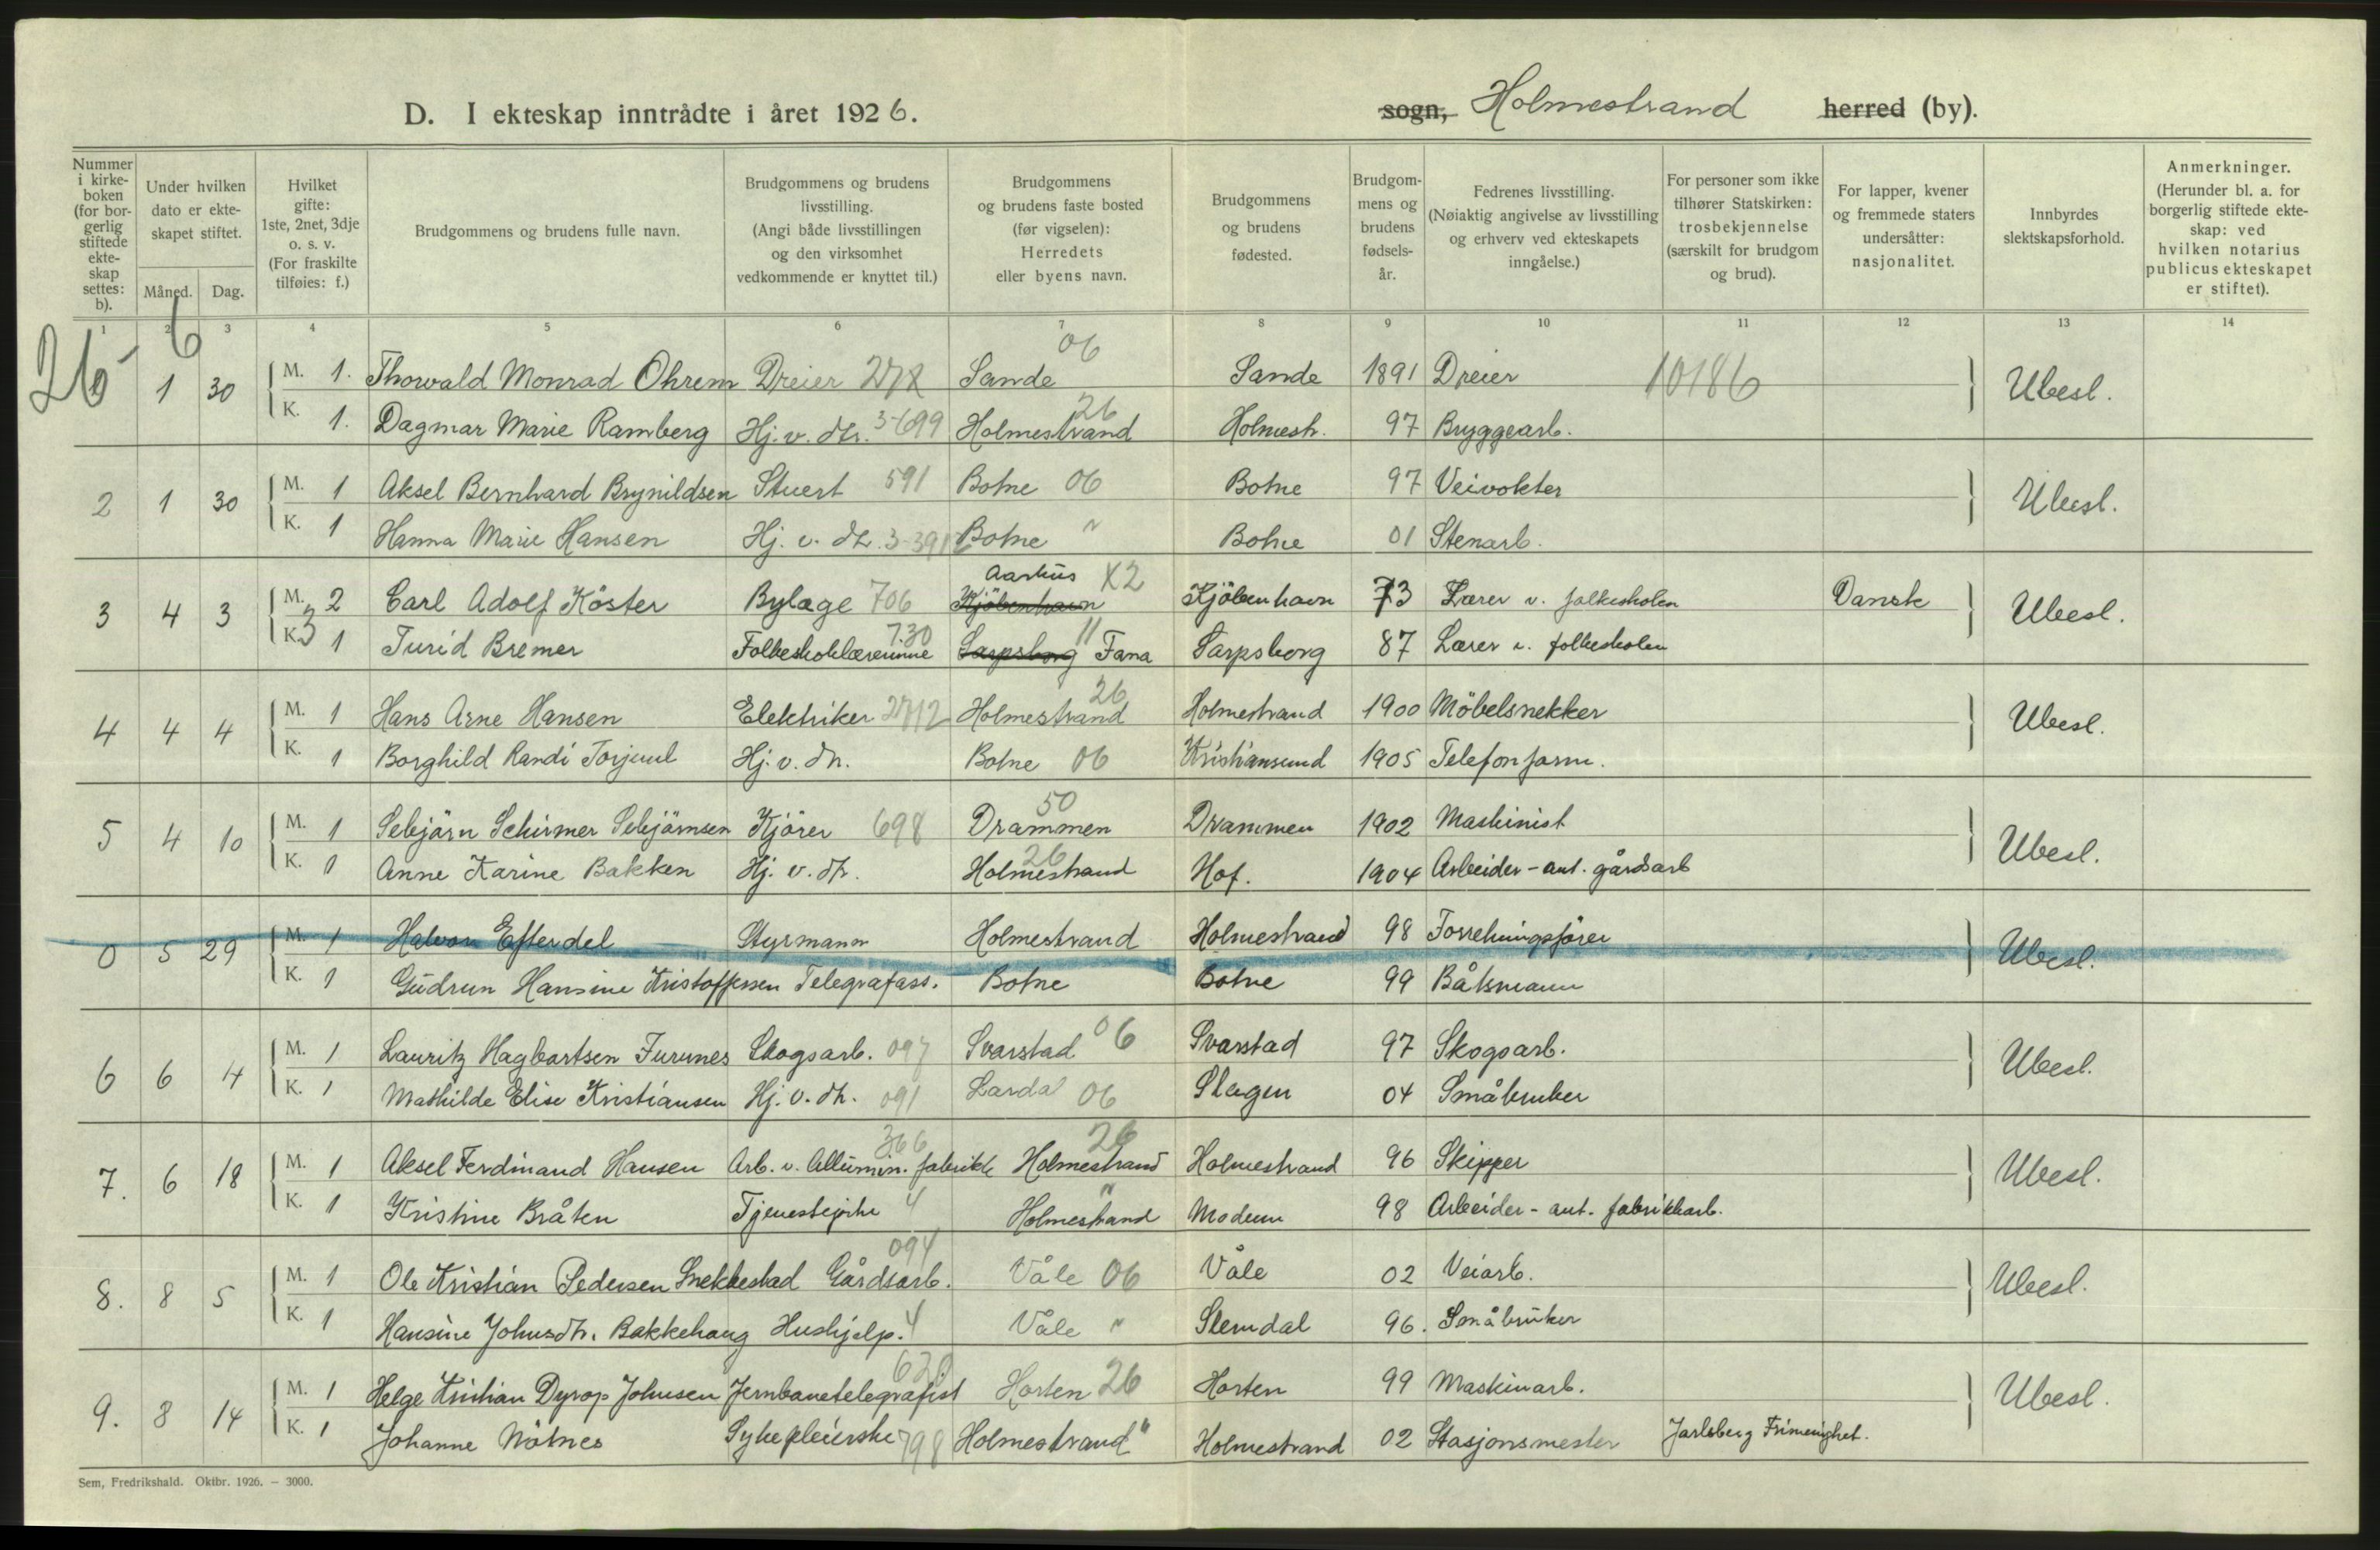 D. I ekteskap inntrådte i året 1926.
sogn, Holmestrand herred (by).
Nummer i kirkeboken (for borgerlig stiftede ekteskap settes: b).
Under hvilken dato er ekteskapet stiftet.
Måned. Dag.
Hvilket gifte: 1ste, 2net, 3dje o. s. v. (For fraskilte tilføies: f.)
Brudgommens og brudens fulle navn.
Brudgommens og brudens livsstilling. (Angi både livsstillingen og den virksomhet vedkommende er knyttet til.)
Brudgommens og brudens faste bosted (før vigselen): Herredets eller byens navn.
Brudgommens og brudens fødested.
Brudgommens og brudens fødselsår.
Fedrenes livsstilling. (Nøiaktig angivelse av livsstilling og erhverv ved ekteskapets inngåelse.)
For personer som ikke tilhører Statskirken: trosbekjennelse (særskilt for brudgom og brud).
For lapper, kvener og fremmede staters undersåtter: nasjonalitet.
Innbyrdes slektskapsforhold.
Anmerkninger. (Herunder bl. a. for borgerlig stiftede ekteskap: ved hvilken notarius publicus ekteskapet er stiftet).
1 2 3 4 5 6 7 8 9 10 11 12 13 14
26 - 6 06
1 30 M. 1. Thorvald Monrad Ohrem Dreier 278 Sande Sande 1891 Dreier 10186 Ubesl.
K. 1. Dagmar Marie Ramberg Hj. v. dtr. 3-699 Holmestrand 26 Holmestr. 97 Bryggearb.
2 1 30 M. 1 Aksel Bernhard Brynildsen Stuert 591 Botne 06 Botne 97 Veivokter Ubesl.
K. 1 Hanna Marie Hansen Hj. v. dtr. 3-391 Botne " Botne 01 Stenarb.
3 4 3 M. 2 Carl Adolf Köster Bylæge 706 Kjöbenhavn Aarhus X2 Kjöbenhavn 73 Lærer v. folkeskolen Dansk Ubesl.
K. 3 1 Turid Bremer Folkeskolelærerinne 730 Sarpsborg Fana 11 Sarpsborg 87 Lærer v. folkeskolen
4 4 4 M. 1 Hans Arne Hansen Elektriker 2712 Holmestrand 26 Holmestrand 1900 Möbelsnekker Ubesl.
K. 1 Borghild Randi Torjuul Hj. v. dtr. Botne 06 Kristiansund 1905 Telefonform.
5 4 10 M. 1 Selvjörn Schirmer Selvjörnsen Kjörer 698 Drammen 50 Drammen 1902 Maskinist Ubesl.
K. 1 Anne Karine Bakken Hj. v. dtr. Holmestrand 26 Hof. 1904 Arbeider - ant. gårdsarb
0 5 29 M. 1 Halvor Efterdel Styrmann Holmestrand Holmestrand 98 Forretningsförer Ubesl.
K. 1 Gudrun Hansine Kristoffersen Telegrafass. Botne Botne 99 Båtsmann
6 6 4 M. 1 Lauritz Hagbartsen Furunes Skogsarb. 097 Svarstad 06 Svarstad 97 Skogsarb. Ubesl.
K. 1 Mathilde Elise Kristiansen Hj. v. dtr. 091 Lardal 06 Slagen 04 Småbruker
7. 6 18 M. 1 Aksel Ferdinand Hansen Arb. v. Allumin. fabrikk 366 Holmestrand 26 Holmestrand 96 Skipper Ubesl.
K. 1 Kristine Bråten Tjenestepike 4 Holmestrand " Modum 98 Arbeider - ant. fabrikkarb.
8. 8 5 M. 1 Ole Kristian Pedersen Snekkestad Gårdsarb. 094 Våle 06 Våle 02 Veiarb. Ubesl.
K. 1 Hansine Johnsdtr. Bakkehaug Hushjelp. 4 Våle " Slemdal 96. Småbruker
9. 8 14 M. 1 Helge Kristian Dyrop Johnsen Jernbanetelegrafist Horten 26 Horten 99 Maskinarb. Ubesl.
K. 1 Johanne Nötnes Sykepleierske 798 Holmestrand " Holmestrand 02 Stasjonsmester Jarlsberg Frimenighet.
Sem, Fredrikshald. Oktbr. 1926. – 3000.